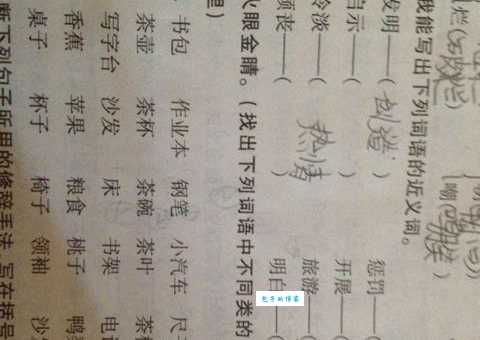 我能写出下列词语的近义词。
发明——(创造) 惩罚——(
启示——( ) 开展——(
冷淡——(热情) 旅游——(
颓丧——( ) 明白——(
火眼金睛。(找出下列词语中不同类的
里)
书包 作业本 钢笔 小汽车
茶壶 茶杯 茶碗 茶叶
写字台 沙发 床 书架
香蕉 苹果 粮食 桃子
桌子 杯子 椅子 领袖
断下列句子所用的修辞手法,写在括号
包子的博客